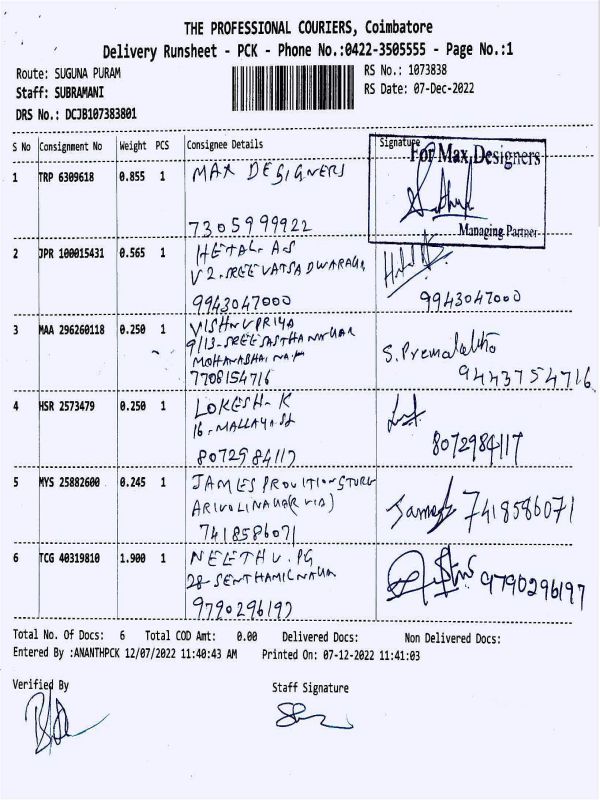 THE PROFESSIONAL COURIERS, Coimbatore
Delivery Runsheet - PCK - Phone No.:0422-3505555 - Page No.:1
Route: SUGUNA PURAM RS No.: 1073838
Staff: SUBRAMANI RS Date: 07-Dec-2022
DRS No.: DCJB107383801
S No Consignment No Weight PCS Consignee Details Signature
1 TRP 6309618 0.855 1 MAX DESIGNERS For Max Designers
7305999922 Managing Partner
2 JPR 100015431 0.565 1 HETAL. A.S
V2. SREEVATSA DWARAKA
9943047000 9943047000
3 MAA 296260118 0.250 1 VISHNUPRIYA
9/13-SREESASTHA NAGAR S. Premalatha
7708154716 9443754716
4 HSR 2573479 0.250 1 LOKESH. K
16-MALLAYA St
8072984117 8072984117
5 MYS 25882600 0.245 1 JAMES PROVITION STORE
James 7418586071
7418586071
6 TCG 40319810 1.900 1 NEETHU. PG
28-SENTHAMIL NAGAR
9790296197 9790296197
Total No. Of Docs: 6 Total COD Amt: 0.00 Delivered Docs: Non Delivered Docs:
Entered By :ANANTHPCK 12/07/2022 11:40:43 AM Printed On: 07-12-2022 11:41:03
Verified By Staff Signature